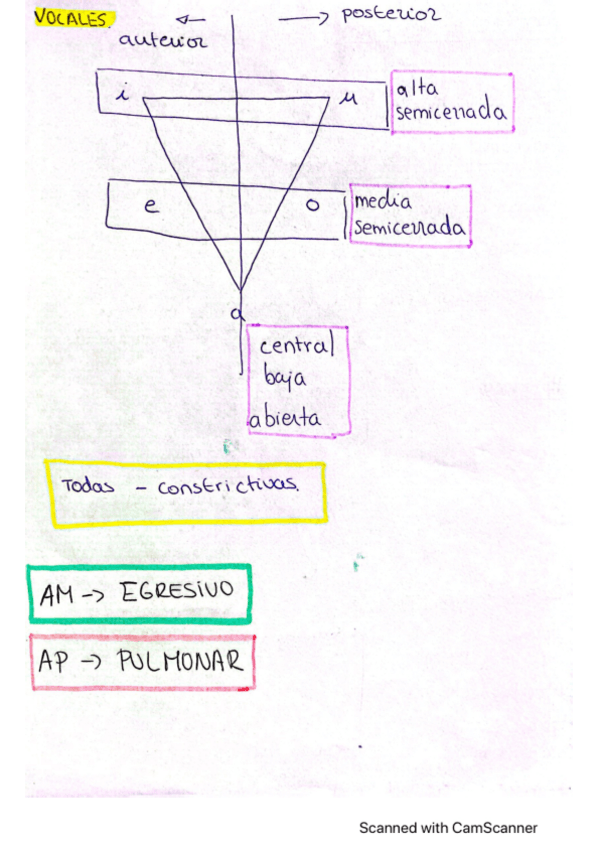 VOCALES.
← → posterior
anterior
i u alta
semicerrada
e o media
semicerrada
a
central
baja
abierta
Todas - constrictivas.
AM → EGRESIVO
AP → PULMONAR
Scanned with CamScanner